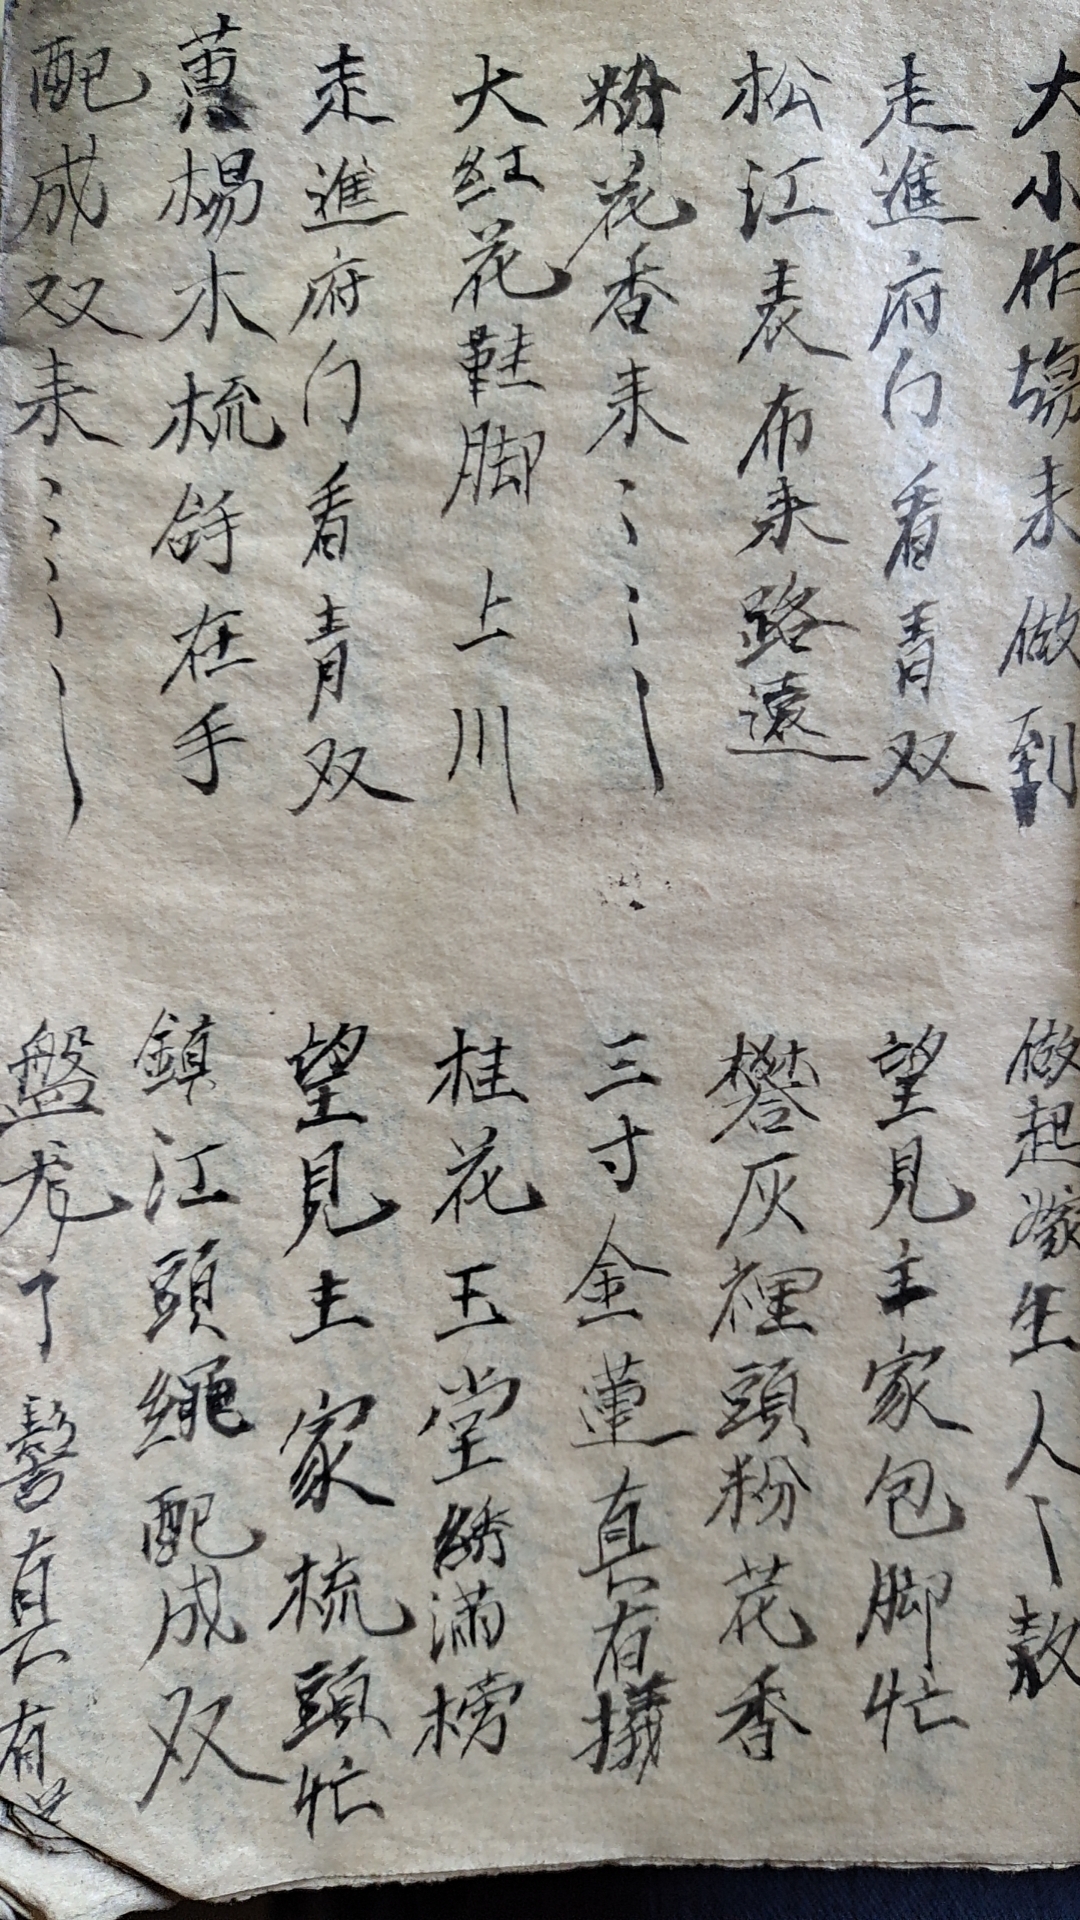 大小作塲来做到
做起嫁生人〻敖
走進府门看青双
望見主家包脚忙
松江表布来路遠
礬灰裡頭粉花香
粉花香来〻〻〻〻
三寸金蓮真有
大紅花鞋脚上川
桂花玉堂綉满榜
走進府门看青双
望見主家梳頭忙
黄楊木梳拿在手
鎮江頭繩配成双
配成双来〻〻〻〻
盤 了 真有